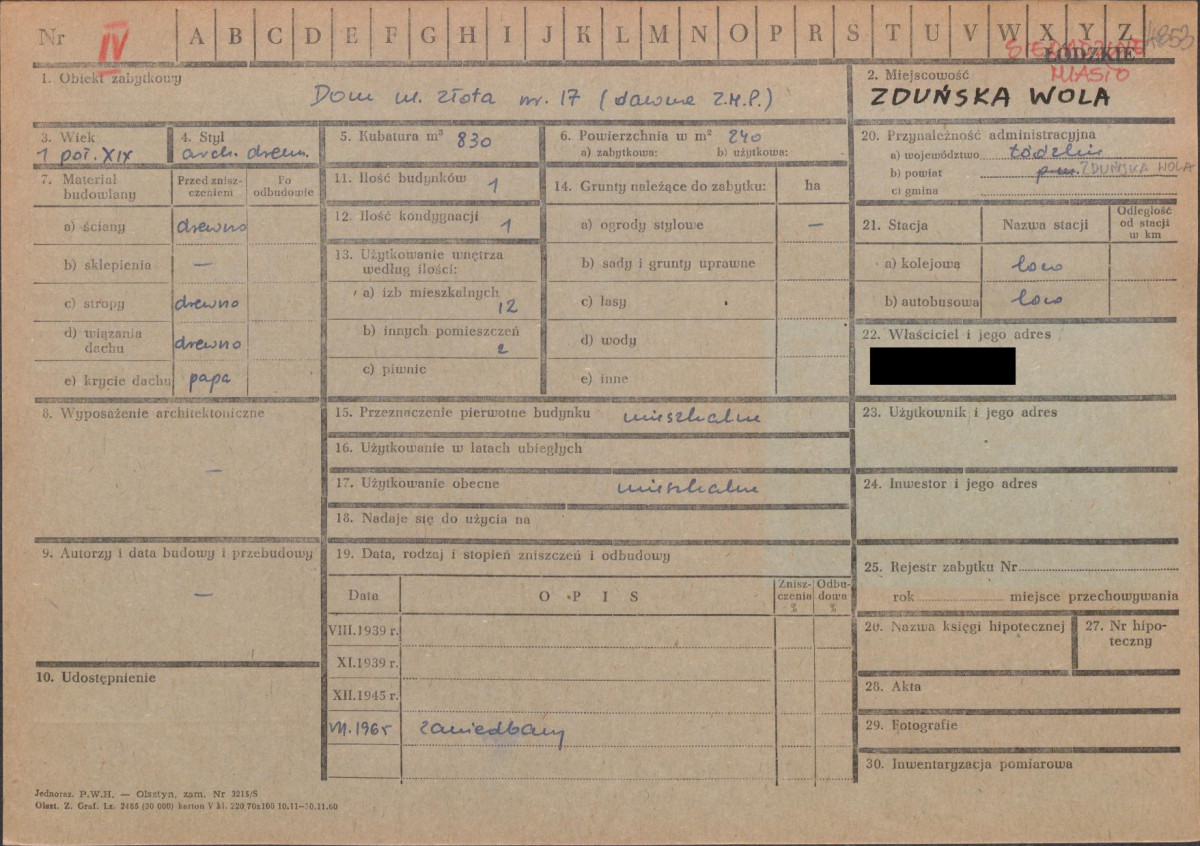 Nr IV A B C D E F G H I J K L M N O P R S T U V W X Y Z 4853
SIERADZKIE
ŁÓDZKIE
MIASTO
1. Obiekt zabytkowy
Dom ul. Złota nr. 17 (dawna Z.M.P.)
2. Miejscowość
ZDUŃSKA WOLA
3. Wiek
1 poł. XIX
4. Styl
arch. drewn.
5. Kubatura m³ 830
6. Powierzchnia w m² 240
a) zabytkowa: b) użytkowa:
7. Materiał budowlany
Przed zniszczeniem
Po odbudowie
a) ściany drewno
b) sklepienia —
c) stropy drewno
d) wiązania dachu drewno
e) krycie dachu papa
8. Wyposażenie architektoniczne
—
9. Autorzy i data budowy i przebudowy
—
10. Udostępnienie
11. Ilość budynków 1
12. Ilość kondygnacji 1
13. Użytkowanie wnętrza
według ilości:
a) izb mieszkalnych
12
b) innych pomieszczeń
2
c) piwnic
14. Grunty należące do zabytku: ha
a) ogrody stylowe —
b) sady i grunty uprawne
c) lasy
d) wody
e) inne
15. Przeznaczenie pierwotne budynku mieszkalne
16. Użytkowanie w latach ubiegłych
17. Użytkowanie obecne mieszkalne
18. Nadaje się do użycia na
19. Data, rodzaj i stopień zniszczeń i odbudowy
Data OPIS Zniszczenia % Odbudowa %
VIII.1939 r.
XI.1939 r.
XII.1945 r.
1965 zaniedbany
20. Przynależność administracyjna
a) województwo Łódzkie
b) powiat ZDUŃSKA WOLA
c) gmina
21. Stacja Nazwa stacji Odległość od stacji w km
a) kolejowa loco
b) autobusowa loco
22. Właściciel i jego adres
23. Użytkownik i jego adres
24. Inwestor i jego adres
25. Rejestr zabytku Nr
rok miejsce przechowywania
26. Nazwa księgi hipotecznej
27. Nr hipoteczny
28. Akta
29. Fotografie
30. Inwentaryzacja pomiarowa
Jednoraz. P.W.H. — Olsztyn, zam. Nr 3215/S
Olszt. Z. Graf. Lz. 2465 (30 000) karton V kl. 220 70x100 10.11—30.11.60